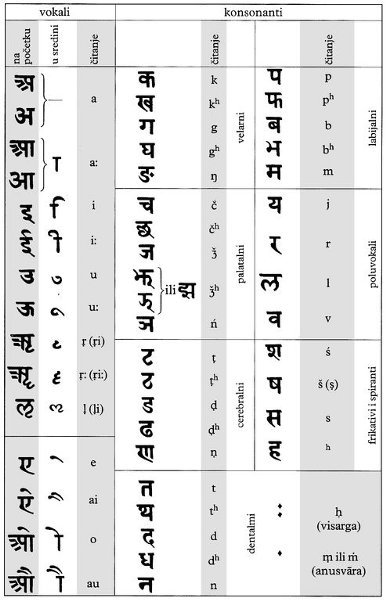 vokali
konsonanti
na početku
u sredini
čitanje
čitanje
čitanje
अ
अ
a
आ
ा
आ
a:
इ ि i
ई ी i:
उ ु u
ऊ ू u:
ऋ ृ ṛ (ṛi)
ॠ ॄ ṛ: (ṛi:)
ऌ ॢ ḷ (ḷi)
ए े e
ऐ ै ai
ओ ो o
औ ौ au
क k
ख kʰ
ग g
घ gʰ
ङ ŋ
velarni
च č
छ čʰ
ज ǯ
झ ili झ ǯʰ
ञ ń
palatalni
ट ṭ
ठ ṭʰ
ड ḍ
ढ ḍʰ
ण ṇ
cerebralni
त t
थ tʰ
द d
ध dʰ
न n
dentalmi
प p
फ pʰ
ब b
भ bʰ
म m
labijalni
य j
र r
ल l
व v
poluvokali
श ś
ष š (ṣ)
स s
ह ʰ
frikativi i spiranti
ः ḥ
(visarga)
ं ṃ ili ṁ
(anusvāra)